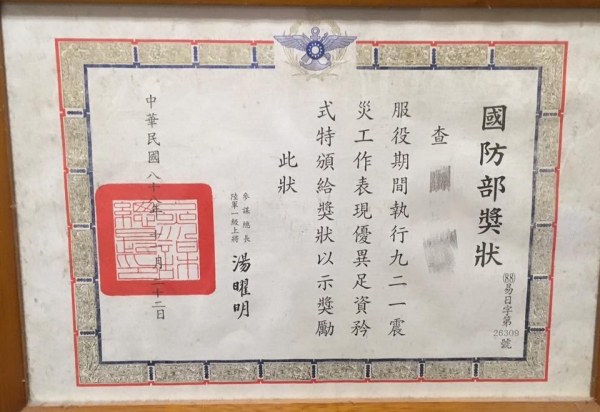 國防部獎狀
(88)易日字第26309號
查
服役期間執行九二一震
災工作表現優異足資矜
式特頒給獎狀以示獎勵
此狀
參謀總長
陸軍一級上將
湯曜明
中華民國八十八年十一月二十二日